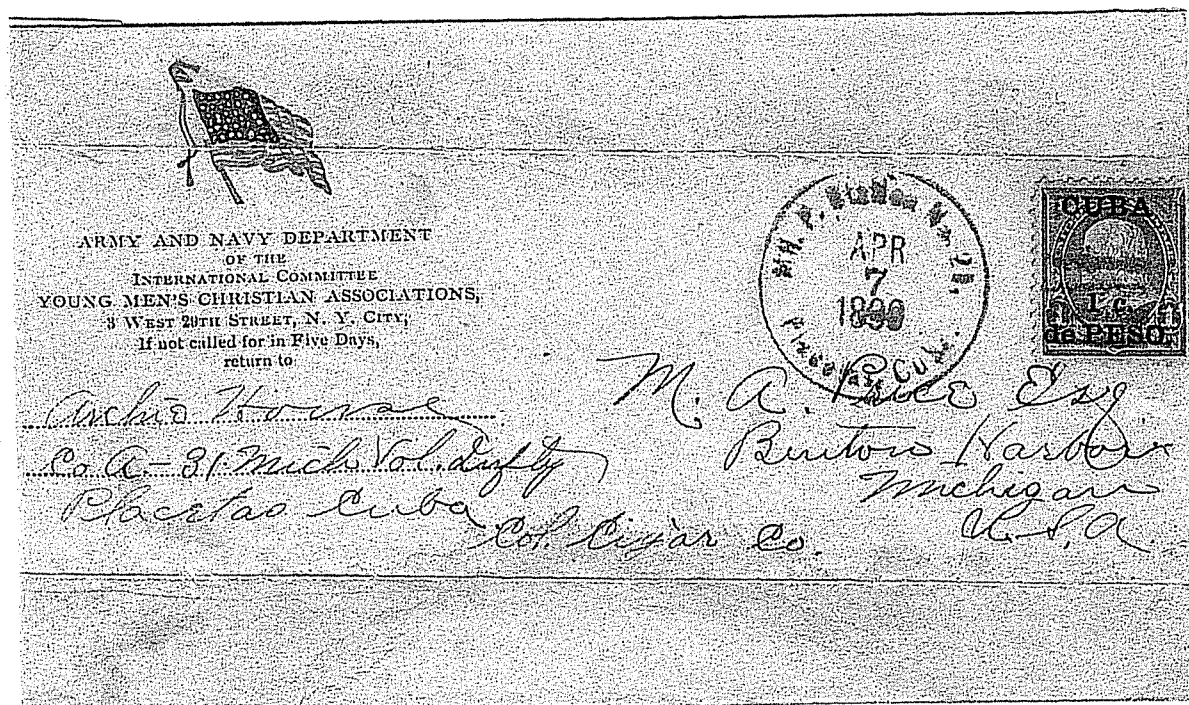 ARMY AND NAVY DEPARTMENT
OF THE
INTERNATIONAL COMMITTEE
YOUNG MEN'S CHRISTIAN ASSOCIATIONS,
3 WEST 29TH STREET, N. Y. CITY,
If not called for in Five Days,
return to
Archie House
Co A. - 31. Mich Vol. Infty
Placetas Cuba
Col. Cigar Co.
Station No.
APR
7
1899
Placetas, Cuba.
CUBA
1 c.
de PESO.
M. A. Esq
Benton Harbor
Michigan
U.S.A.